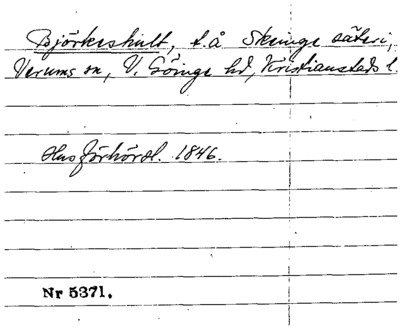 Björkeshult, t.å Skeinge säteri,
Verums sn, V. Göinge hd, Kristianstads l.
Husförhörsl. 1846.
Nr 5371.